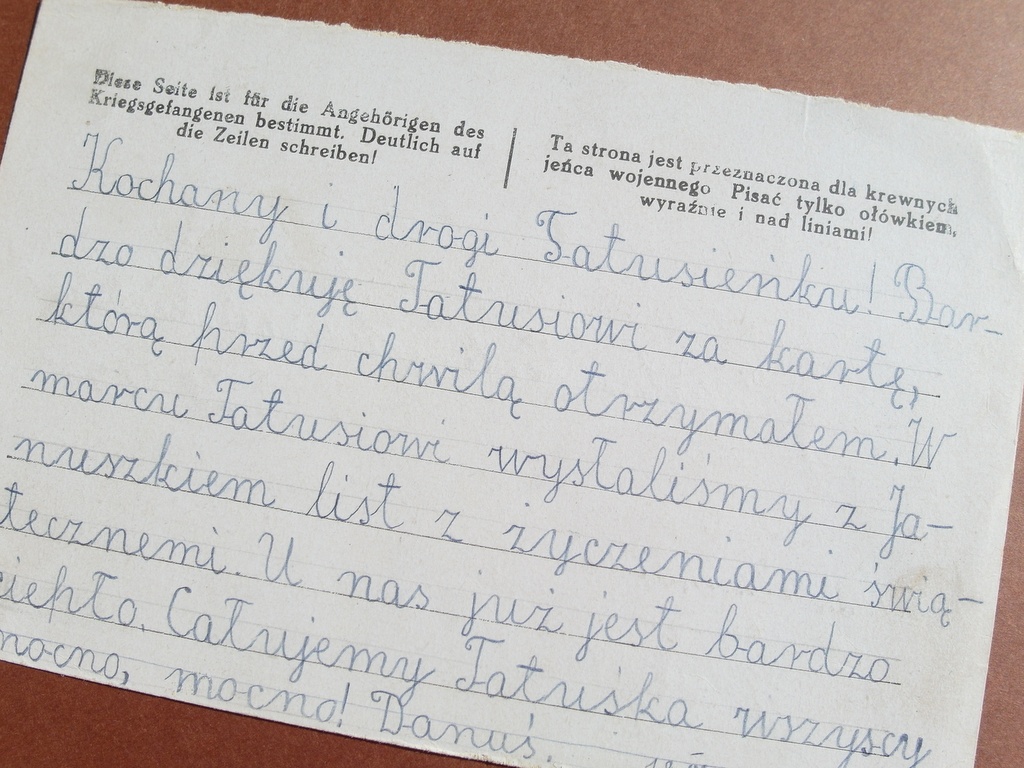 Diese Seite ist für die Angehörigen des
Kriegsgefangenen bestimmt. Deutlich auf
die Zeilen schreiben!
Ta strona jest przeznaczona dla krewnych
jeńca wojennego Pisać tylko ołówkiem,
wyraźnie i nad liniami!
Kochany i drogi Tatusieńku! Bar-
dzo dziękuję Tatusiowi za kartę,
którą przed chwilą otrzymałem. W
marcu Tatusiowi wysłaliśmy z Ja-
nuszkiem list z życzeniami świą-
tecznemi. U nas już jest bardzo
ciepło. Całujemy Tatuśka wszyscy
mocno, mocno! Danuś.